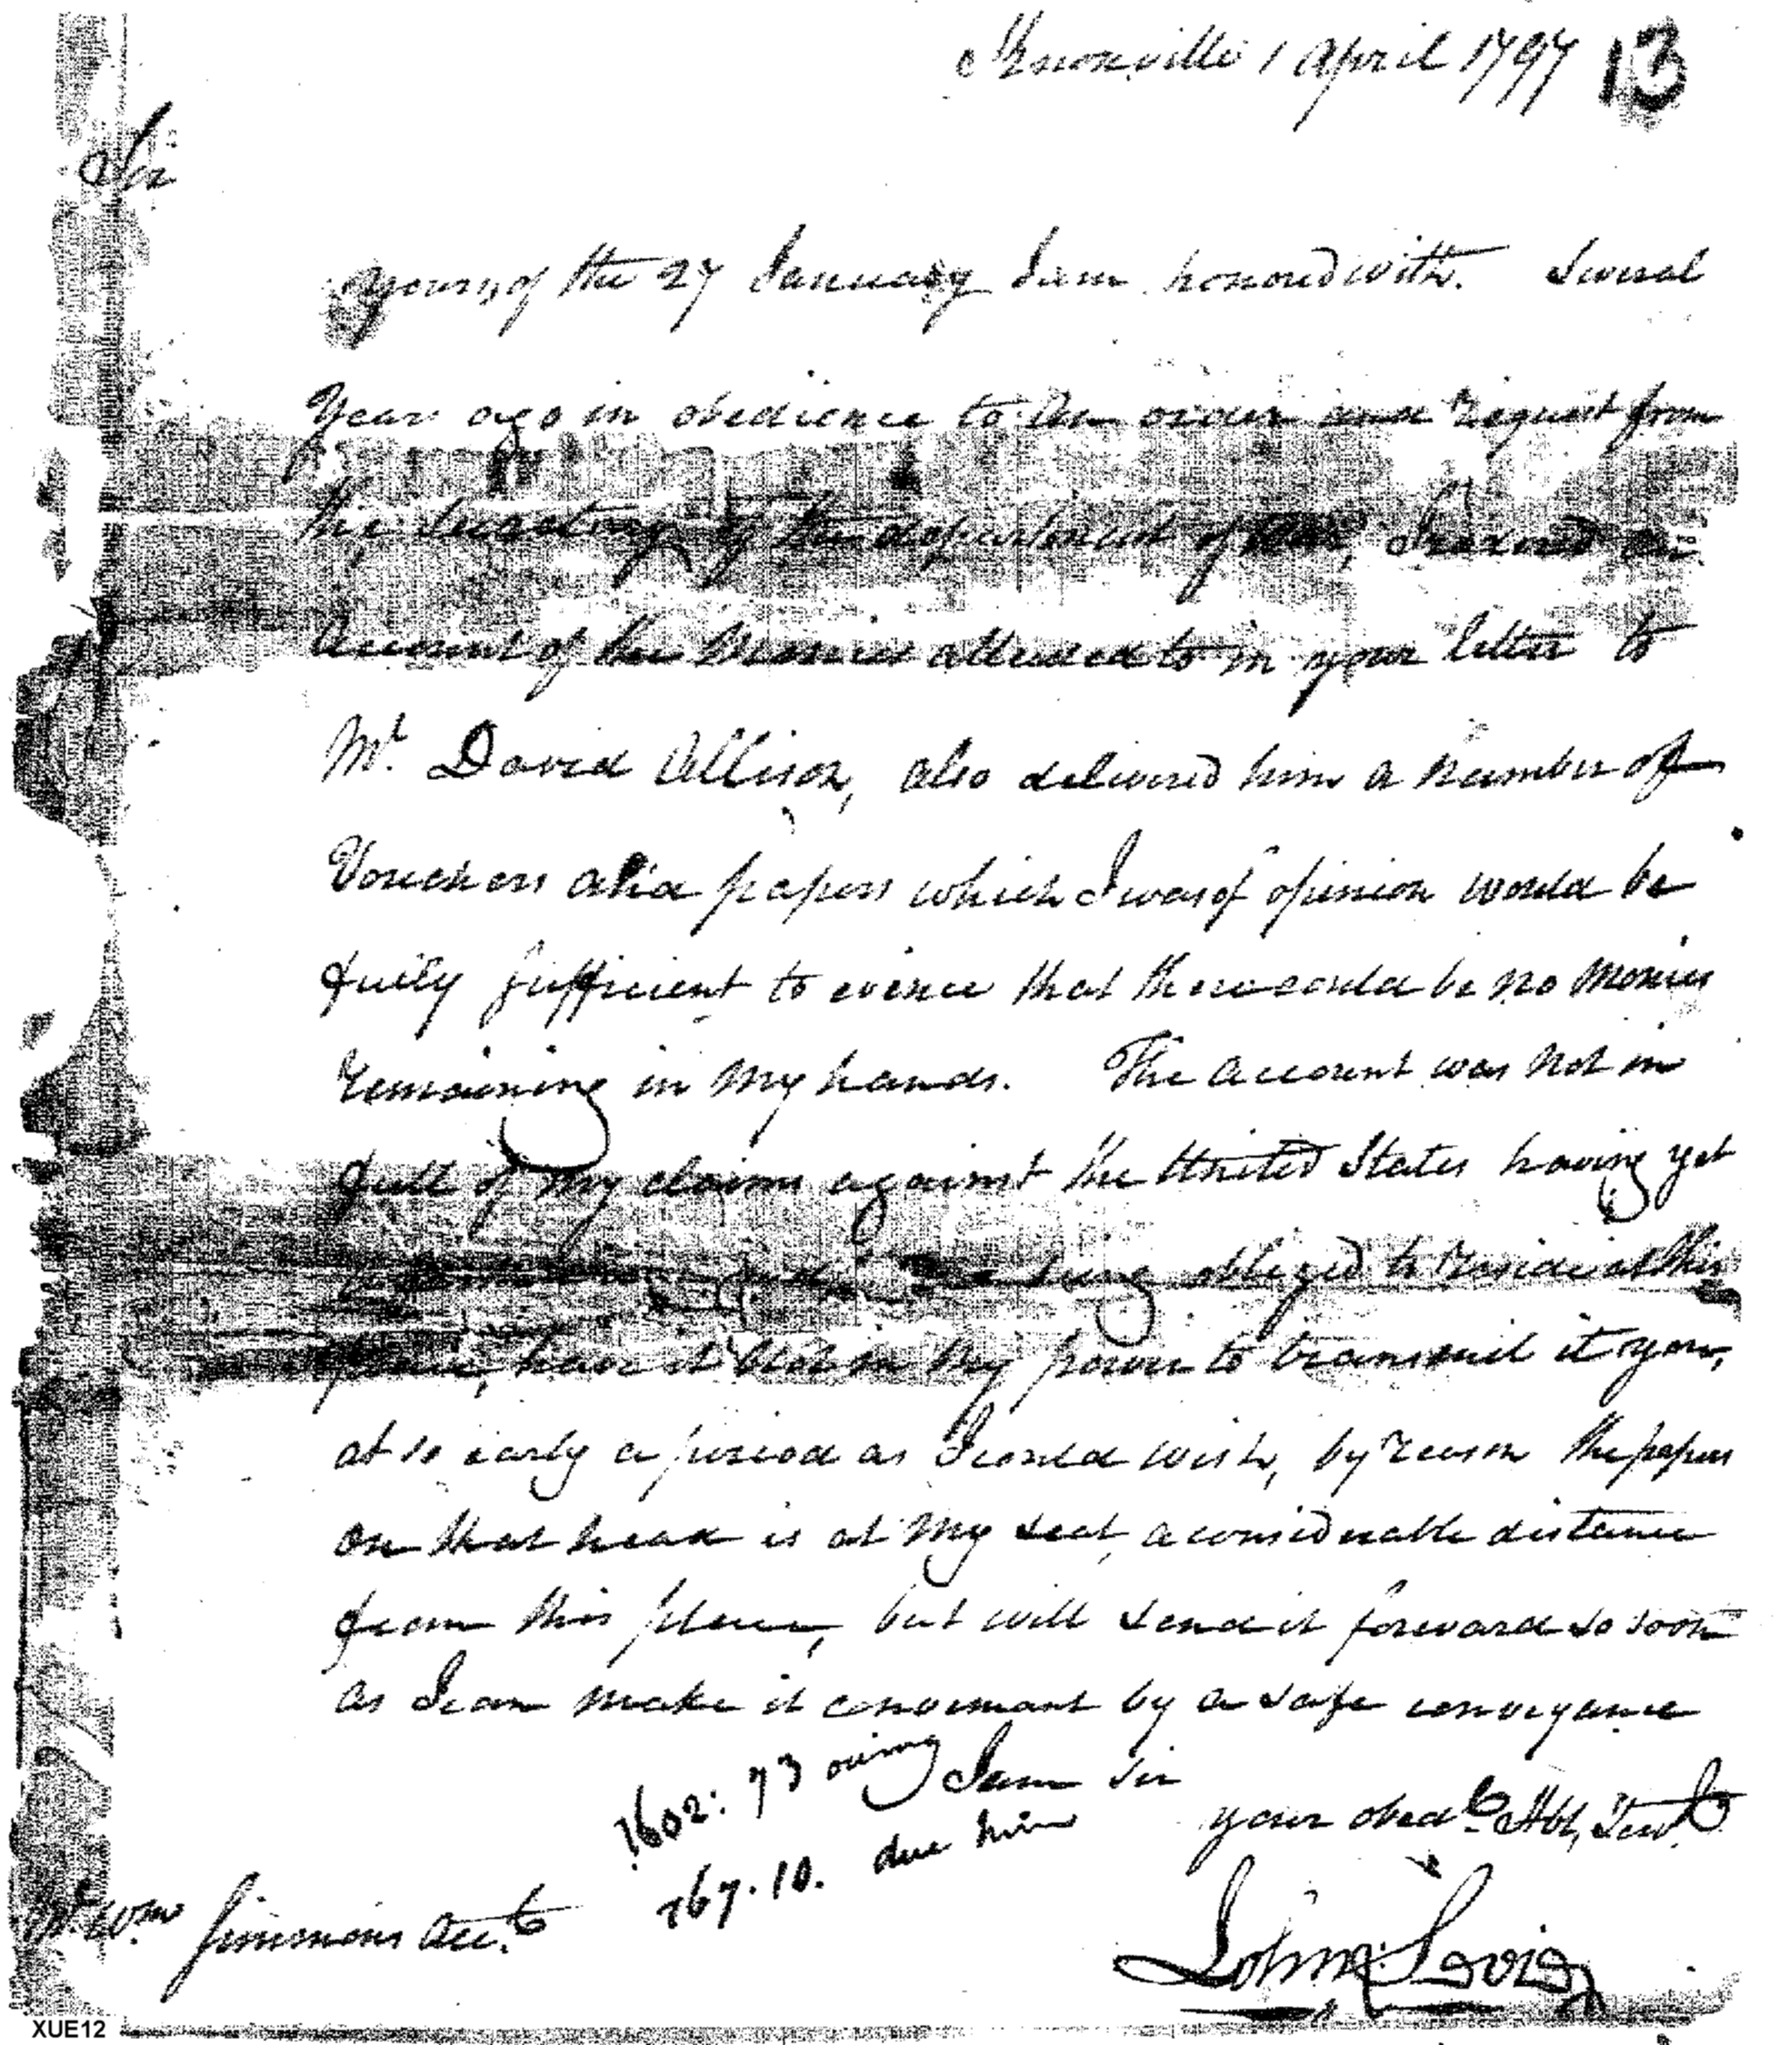 Knoxville 1 April 1797 13
Sir
yours, of the 27 January I am honored with. Several
Years ago in obedience to an order and request from
the Secretary of the department of War, I
Account of the Monies alluded to in your letter to
Mr. David Allison, also delivered him a number of
Vouchers and papers which I was of opinion would be
fully sufficient to evince that there could be no Monies
remaining in my hands. The account was not in
full of my claims against the United States having yet
being obliged to reside at this
place, have it not in my power to transmit it you,
at so early a period as I could wish, by reason the papers
on that head is at my seat, a considerable distance
from this place, but will send it forward so soon
as I can make it convenient by a safe conveyance
I am Sir
1602: 73 owing
your obedt. Hbl, Servt
767.10. due him
Mr. Wm Simmons Acct.
John Sevier
XUE12